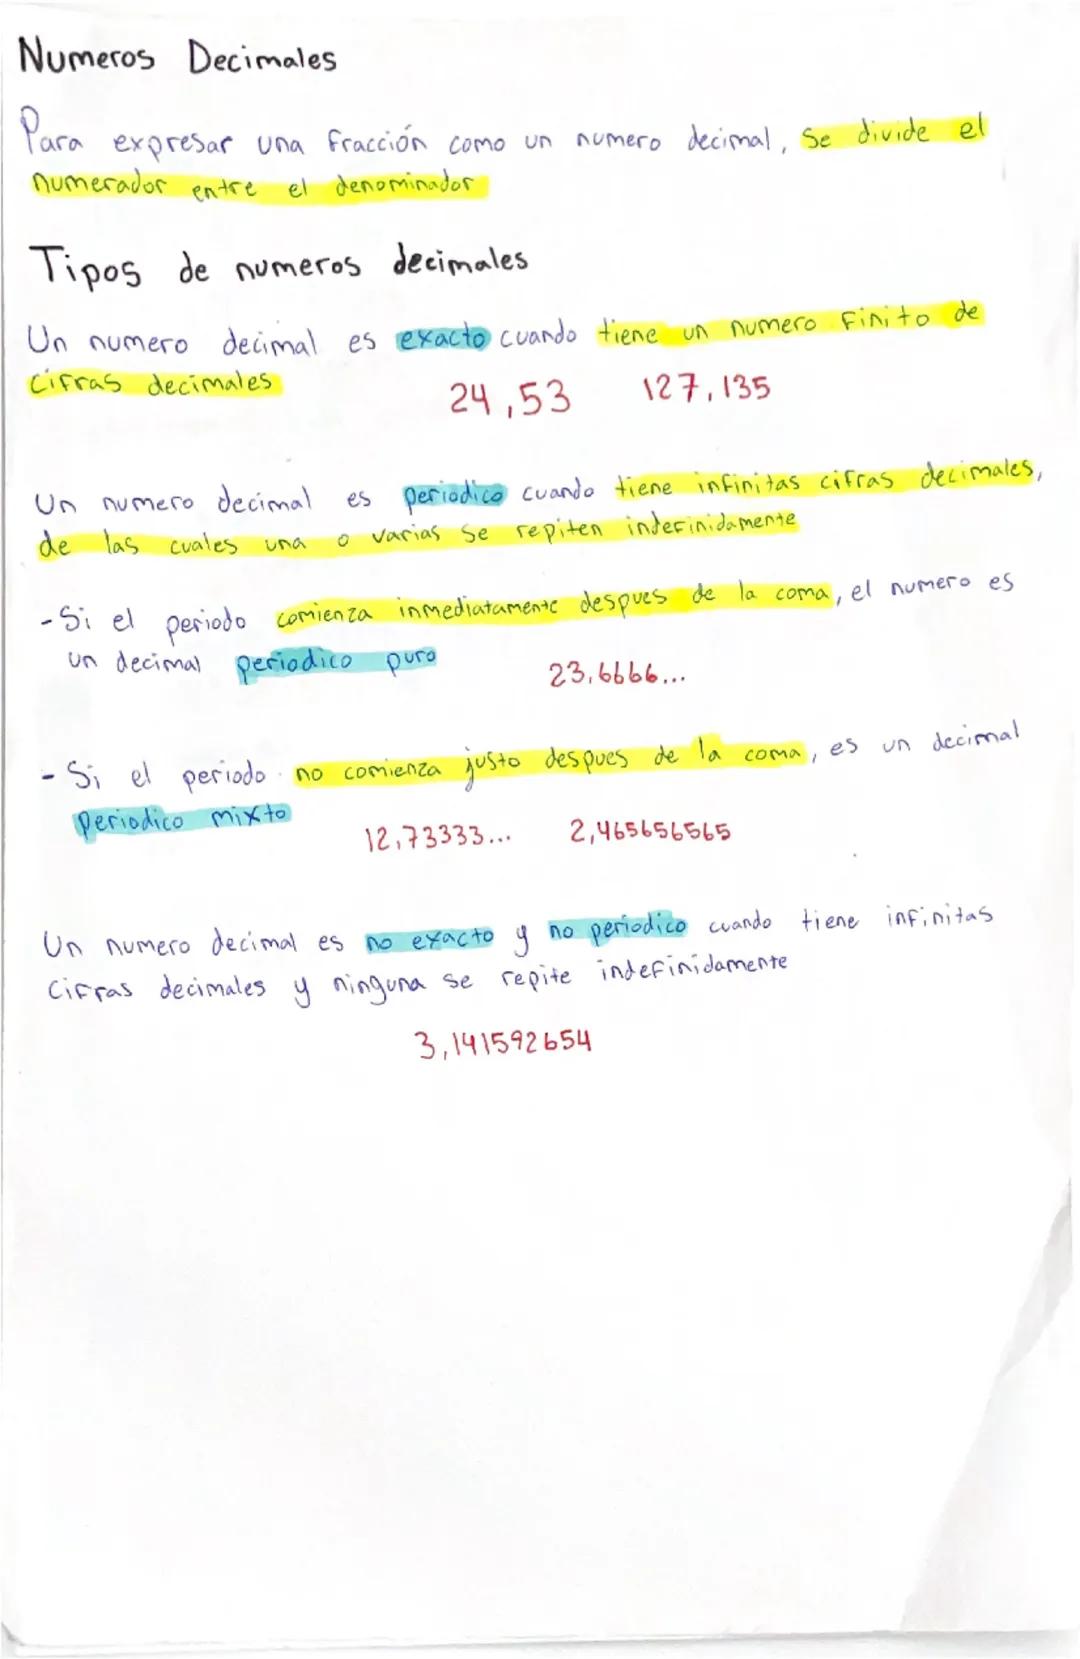 Numeros Decimales
Para expresar una fracción como un numero decimal, se divide el
numerador entre el denominador
Tipos de numeros decimales
Un numero decimal es exacto cuando tiene un numero finito de
cifras decimales 24,53 127,135
Un numero decimal es periodico cuando tiene infinitas cifras decimales,
de las cuales una o varias se repiten indefinidamente
- Si el periodo comienza inmediatamente despues de la coma, el numero es
un decimal periodico puro 23,6666...
- Si el periodo no comienza justo despues de la coma, es un decimal
periodico mixto 12,73333... 2,465656565
Un numero decimal es no exacto y no periodico cuando tiene infinitas
cifras decimales y ninguna se repite indefinidamente
3,141592654